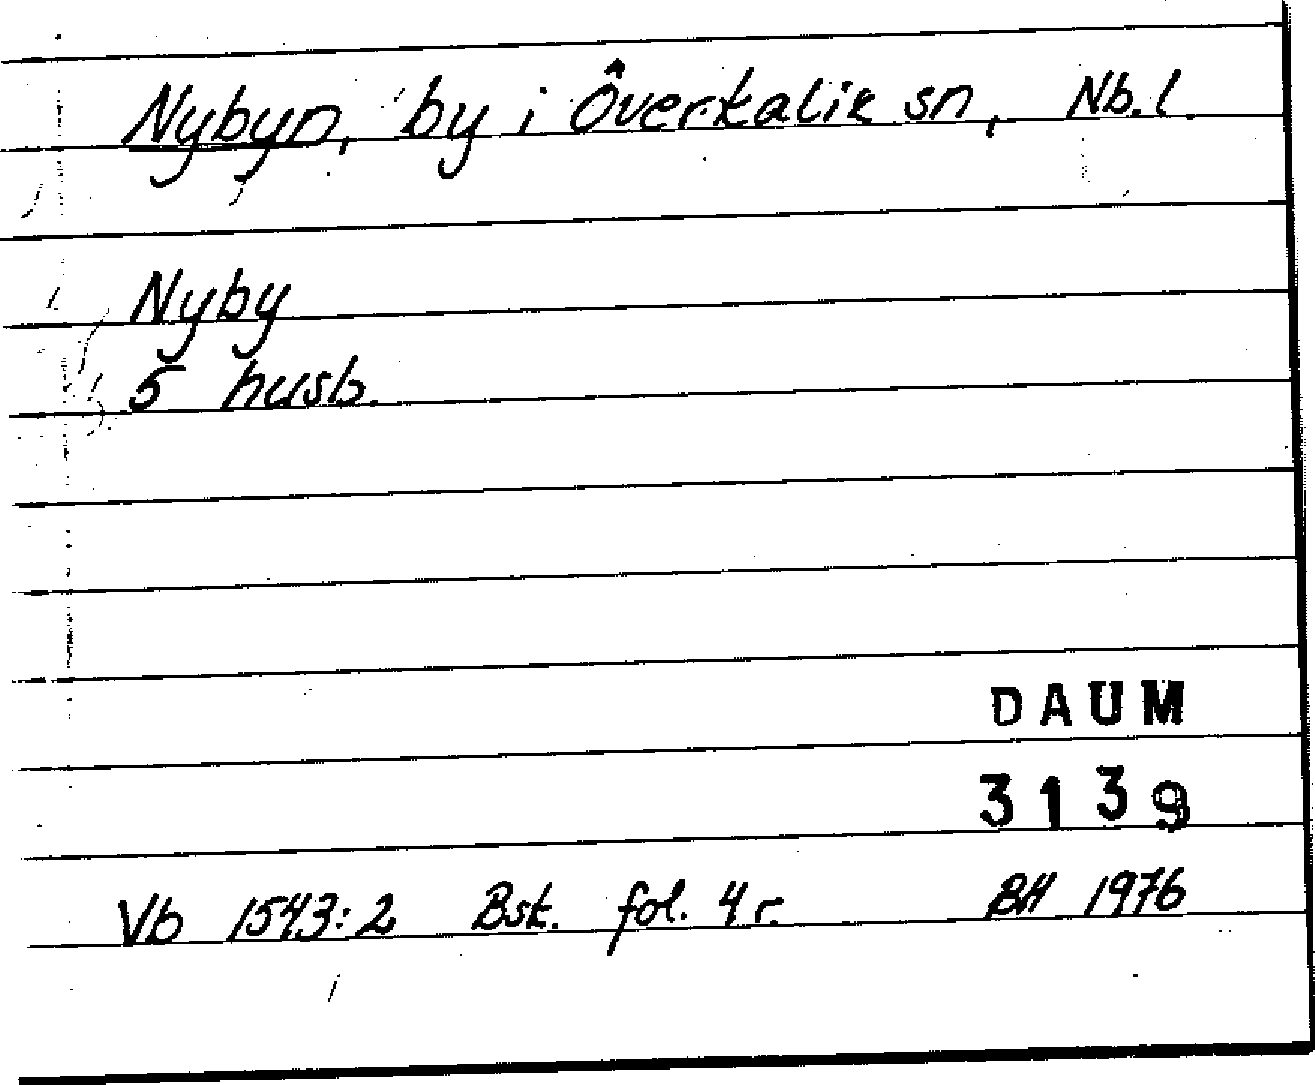 Nybyn, by i Överkalix sn, Nb.l.
Nyby
5 husb.
DAUM
3139
Vb 1543:2 Bsk. fol. 4r. BH 1976